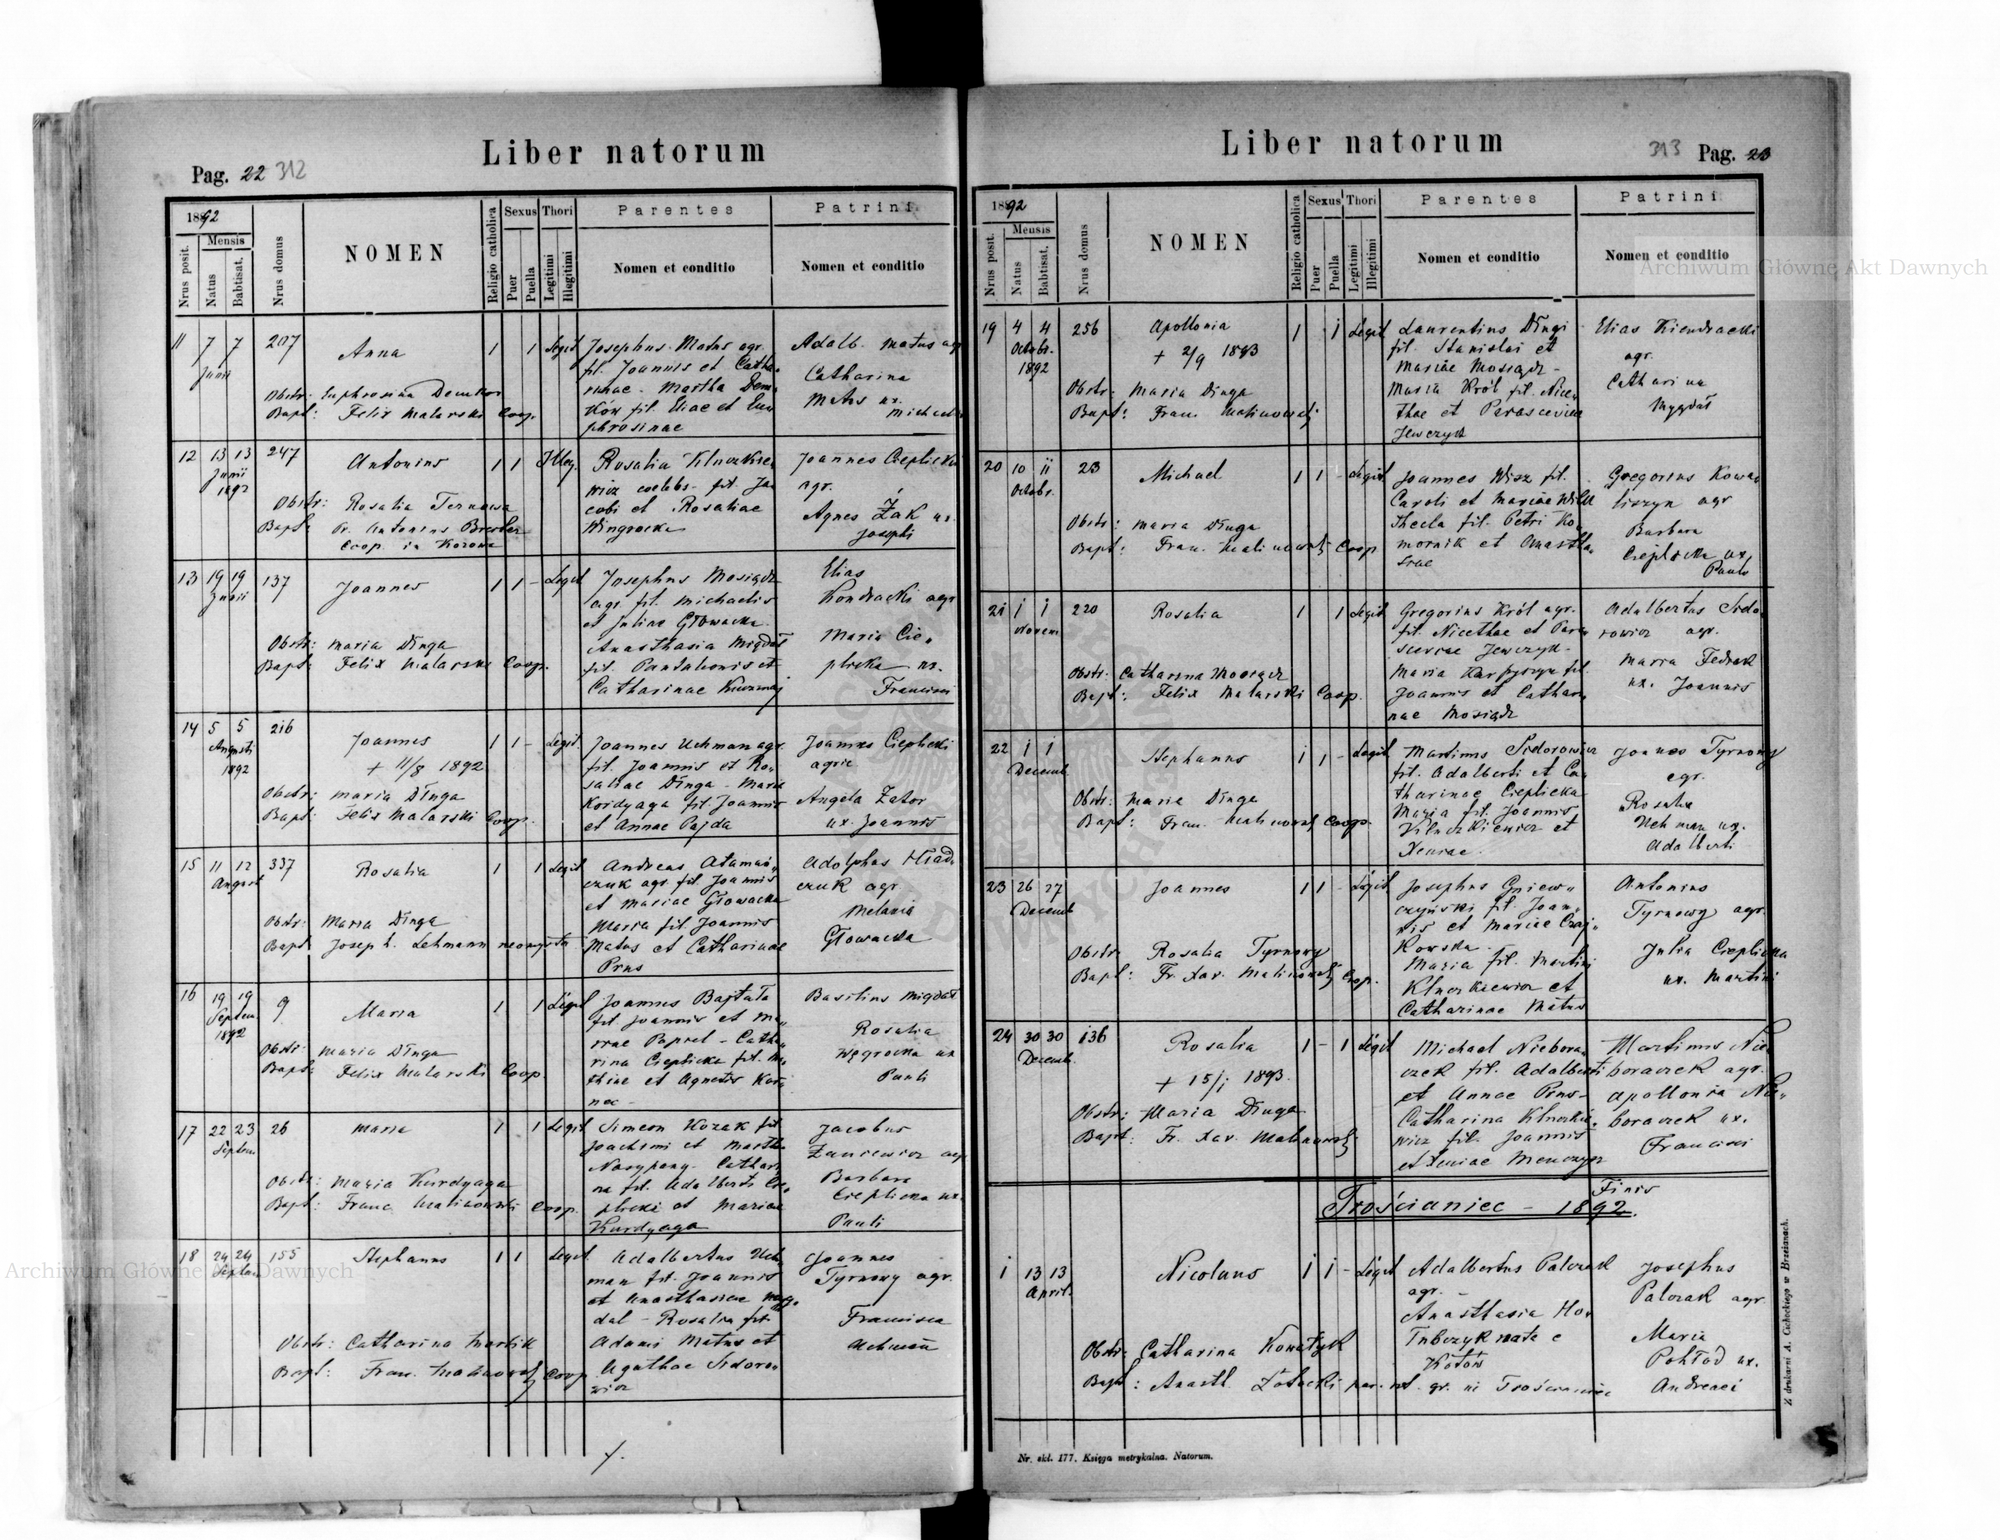 Liber natorum
Pag. 22 312
1892
Nrus posit.
Mensis
Natus
Babtisat.
Nrus domus
NOMEN
Religio catholica
Sexus
Puer
Puella
Thori
Legitimi
Illegitimi
Parentes
Nomen et conditio
Patrini
Nomen et conditio
11 7 7 207 Anna 1 1 Legit
Junii
Josephus Matus agr.
fil. Joannis et Catha-
rinae. Martha Dem-
ków fil. Eliae et Eu-
phrosinae
Adalb. Matus agr
Catharina
Matus ux.
Michaelis
Obstr: Euphrosina Demkow
Bapt: Felix Malarski Coop.
12 13 13 247 Antonius 1 1 Illeg.
Junii
1892
Rosalia Kluczkie-
wicz coelebs. fil. Ja-
cobi et Rosaliae
Joannes Cieplicki
agr.
Agnes Żak ux.
Josephi
Obstr: Rosalia Ternowa
Bapt: Antonius
Coop. in Kozowa
13 19 19 137 Joannes 1 1 - Legit
Junii
Josephus Mosiądz
agr. fil. Michaelis
et Juliae Głowacka
Anasthasia Migdał
fil. Pantaleonis et
Catharinae
Elias
Kondracki agr
Maria Cie-
plicka ux.
Francisci
Obstr: Maria Dinga
Bapt: Felix Malarski Coop.
14 5 5 216 Joannes 1 1 - Legit.
Augusti
1892
+ 11/8 1892
Joannes Uchman agr.
fil. Joannis et Ro-
saliae Dinga - Maria
Kordyaga fil. Joannis
et Annae Pajda
Joannes Cieplicki
agric
Angela Zator
ux. Joannis
Obstr: Maria Dinga
Bapt: Felix Malarski Coop.
15 11 12 337 Rosalia 1 1 Legit
August
Andreas Ataman-
czuk agr. fil. Joannis
et Mariae Głowacka
Maria fil. Joannis
Matus et Catharinae
Prus
Adolphus Hład-
czuk agr
Melania
Głowacka
Obstr: Maria Dinga
Bapt: Joseph. Lehmann neomysta
16 19 19 9 Maria 1 1 Legit
Septem.
1892
Joannes Bajtała
fil. Joannis et Ma-
riae Paprel - Catha-
rina Cieplicka fil. Ma-
thiae et Agnetis
Basilius Migdał
Rosalia
Węgrocka ux
Pauli
Obstr: Maria Dinga
Bapt: Felix Malarski Coop.
17 22 23 26 Maria 1 1 Legit
Septem
Simeon Kozak fil.
Joachimi et Martha
Nasypany. Cathari-
na fil. Adalberti Cie-
plicki et Mariae
Kurdyaga
Jacobus
agr
Barbara
Cieplicka ux.
Pauli
Obstr: Maria Kurdyaga
Bapt: Franc. Malinowski Coop.
18 24 24 155 Stephanus 1 1 Legit
Septem
Adalbertus Uch-
man fil. Joannis
et Anasthasiae Mig-
dal - Rosalia fil.
Adami Matus et
Agathae Sidoro-
wicz
Joannes
Tyrnowy agr.
Francisca
Uchman
Obstr: Catharina
Bapt: Fran. Malinowski Coop
Liber natorum
313 Pag. 23
1892
Nrus posit.
Mensis
Natus
Babtisat.
Nrus domus
NOMEN
Religio catholica
Sexus
Puer
Puella
Thori
Legitimi
Illegitimi
Parentes
Nomen et conditio
Patrini
Nomen et conditio
19 4 4 256 Apollonia 1 1 Legit
Octobr.
1892
+ 2/9 1893
Laurentius Dingi
fil. Stanislai et
Mariae Mosiądz -
Maria Król fil. Nice-
thae et Parasceviae
Jewczyk
Elias Kiendracki
agr.
Catharina
Mygdał
Obstr: Maria Dinga
Bapt: Fran. Malinowski
20 10 11 23 Michael 1 1 - Legit
Octobr.
Joannes Wisz fil.
Caroli et Mariae Wilk
Thecla fil. Petri Ko-
mornik et Anastha-
siae
Gregorius Kowa-
liszyn agr
Barbara
Cieplicka ux.
Pauli
Obstr: Maria Dinga
Bapt: Fran. Malinowski Coop
21 1 1 220 Rosalia 1 1 Legit
Novem
Gregorius Król agr.
fil. Nicethae et Para-
sceviae Jewczyk -
Maria Karpyszyn fil.
Joannis et Cathari-
nae Mosiądz
Adalbertus Sido-
rowicz agr.
Maria Fedrak
ux. Joannis
Obstr: Catharina Mosiądz
Bapt: Felix Malarski Coop.
22 1 1 Stephanus 1 1 - Legit
Decemb
Martinus Sidorowicz
fil. Adalberti et Ca-
tharinae Cieplicka
Maria fil. Joannis
Kluczkiewicz et
Xeniae.
Joannes Tyrnowy
agr.
Rosalia
Uchman ux.
Adalberti
Obstr: Maria Dinga
Bapt: Fran. Malinowski Coop.
23 26 27 Joannes 1 1 - Legit
Decemb
Josephus Gniew-
czyński fil. Joan-
nis et Mariae Czaj-
kowska
Maria fil. Martini
Kluczkiewicz et
Catharinae Matus
Antonius
Tyrnowy agr.
Julia Cieplicka
ux. Martini
Obstr: Rosalia Tyrnowy
Bapt: Fr. Xav. Malinowski Coop.
24 30 30 136 Rosalia 1 - 1 Legit
Decemb
+ 15/1 1893.
Michael Niebora-
czek fil. Adalberti
et Annae Prus -
Catharina Kluczkie-
wicz fil. Joannis
et Xeniae
Martinus Nie-
boraczek agr.
Apollonia Nie-
boraczek ux.
Francisci
Obstr: Maria Dinga
Bapt: Fr. Xav. Malinowski
Finis
Trościaniec - 1892.
1 13 13 Nicolaus 1 1 - Legit
April.
Adalbertus Palczak
agr. -
Anasthasia Hor-
Kotów
Josephus
Palczak agr
Maria
Pohład ux.
Andreae
Obstr: Catharina Kowałyk
Bapt: Anastl.
Nr. skł. 177. Księga metrykalna. Natorum.
Z drukarni A. Cichockiego w Brzeżanach.
Archiwum Główne Akt Dawnych
Archiwum Główne Akt Dawnych